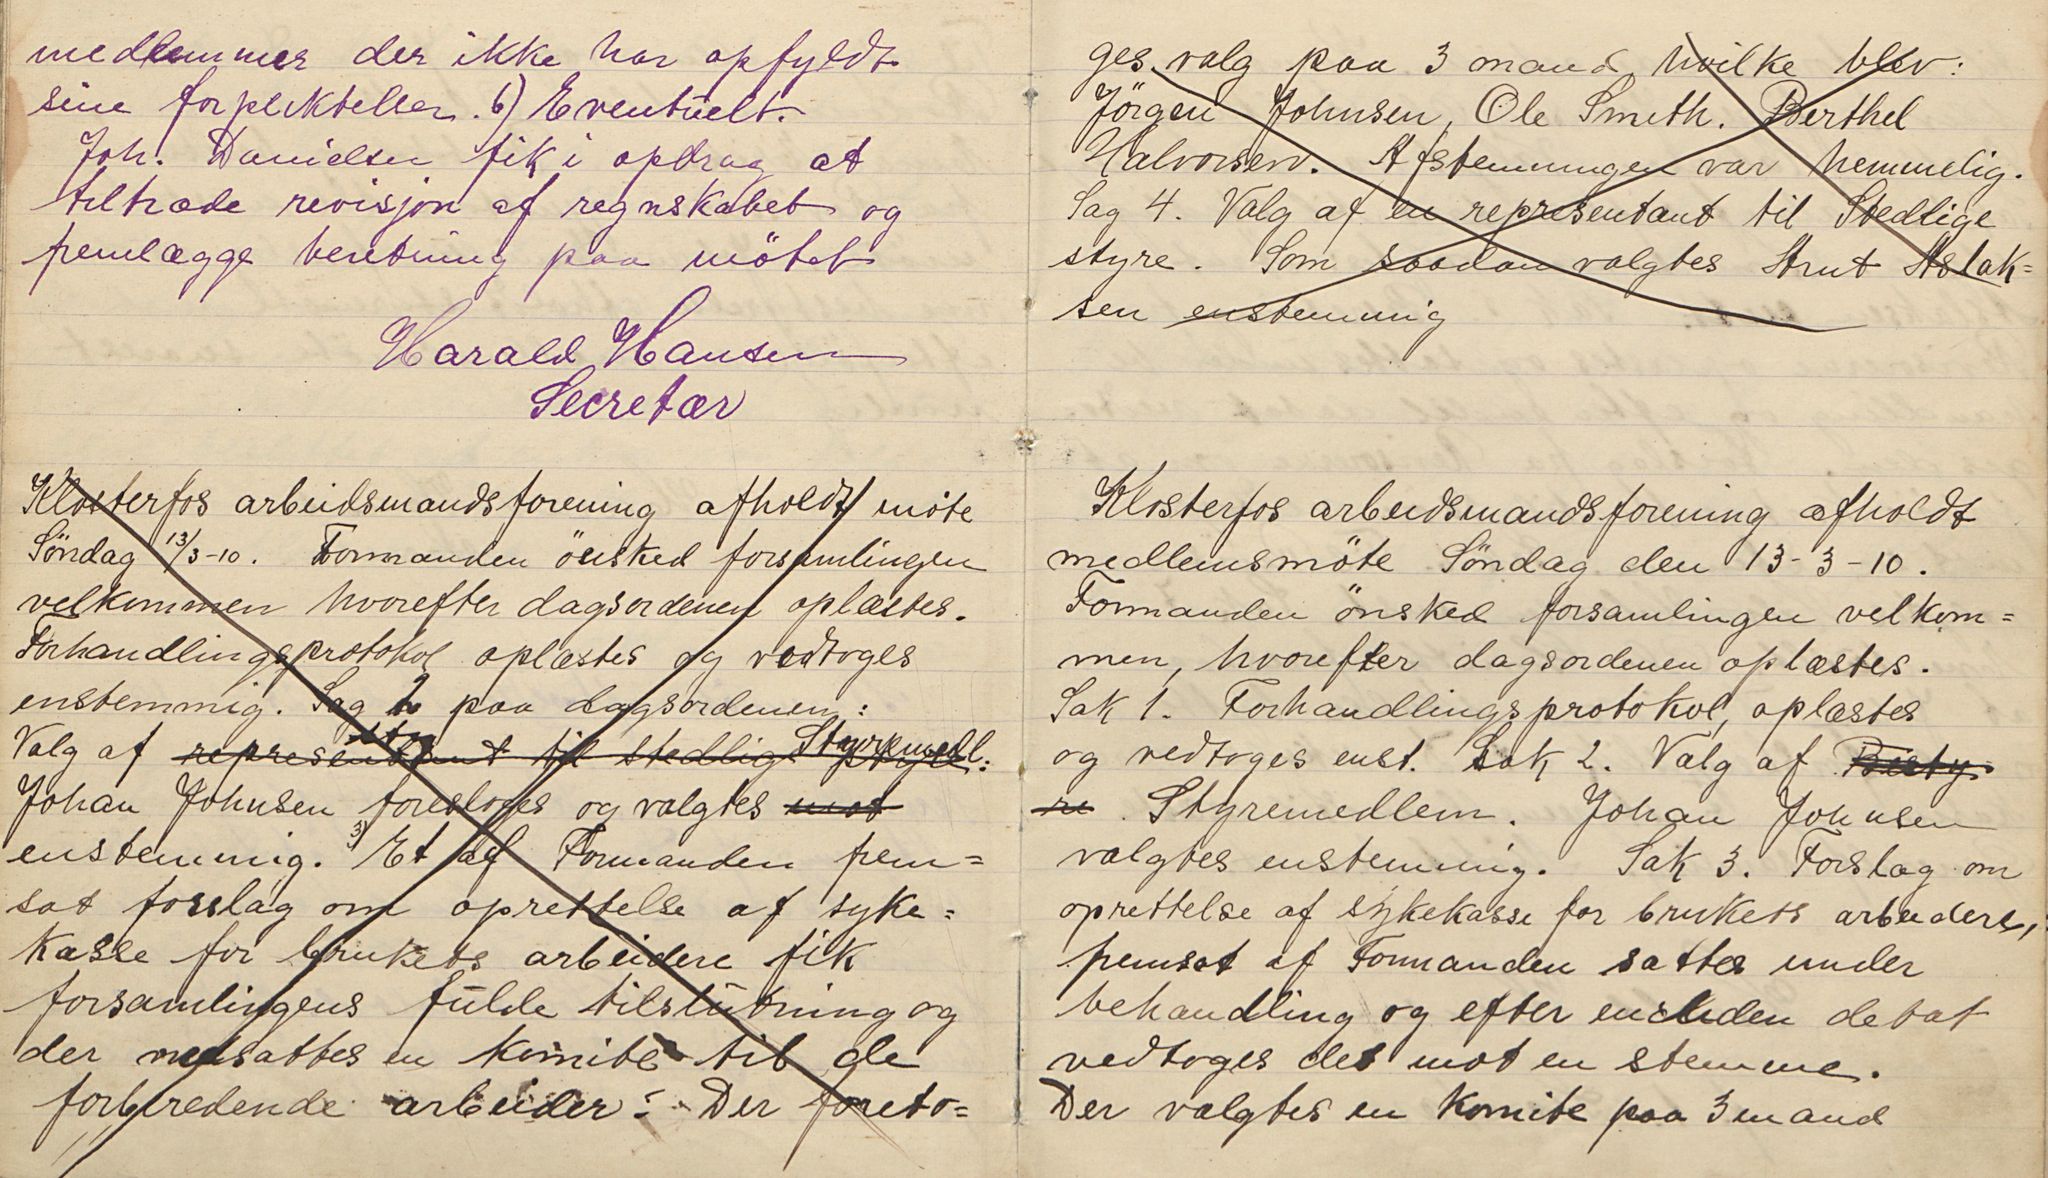 medlemmer der ikke har opfyldt
sine forpliktelser. 6) Eventuelt.
Joh. Danielsen fik i opdrag at
tiltræde revisjon af regnskabet og
fremlægge beretning paa mötet
Harald Hansen
Secretær
Klosterfos arbeidsmandsforening afholdt möte
Söndag 13/3-10. Formanden önsked forsamlingen
velkommen hvorefter dagsordenen oplæstes.
Forhandlingsprotokol oplæstes og vedtoges
enstemmig. Sag 2 paa dagsordenen:
Valg af representant til stedlig Styremedl.:
Johan Johnsen foresloges og valgtes mot
enstemmig. 3) Et af Formanden frem=
sat forslag om oprettelse af syke=
kasse for brukets arbeidere fik
forsamlingens fulde tilslutning og
der nedsattes en komite til de
forberedende arbeider: Der foreto=
ges valg paa 3 mand hvilke blev:
Jörgen Johnsen, Ole Smeth. Berthel
Halvorsen. Afstemningen var hemmelig.
Sag 4. Valg af en representant til Stedlige
styre. Som saadan valgtes Knut Aslak=
sen enstemmig
Klosterfos arbeidsmandsforening afholdt
medlemsmöte Söndag den 13-3-10.
Formanden önsked forsamlingen velkom=
men, hvorefter dagsordenen oplæstes.
Sak 1. Forhandlingsprotokol, oplæstes
og vedtoges enst. Sak 2. Valg af Besty=
re. Styremedlem. Johan Johnsen
valgtes enstemmig. Sak 3. Forslag om
oprettelse af sykekasse for brukets arbeidere,
fremsat af Formanden sattes under
behandling og efter endel debat
vedtoges det mot en stemme.
Der valgtes en komite paa 3 mand